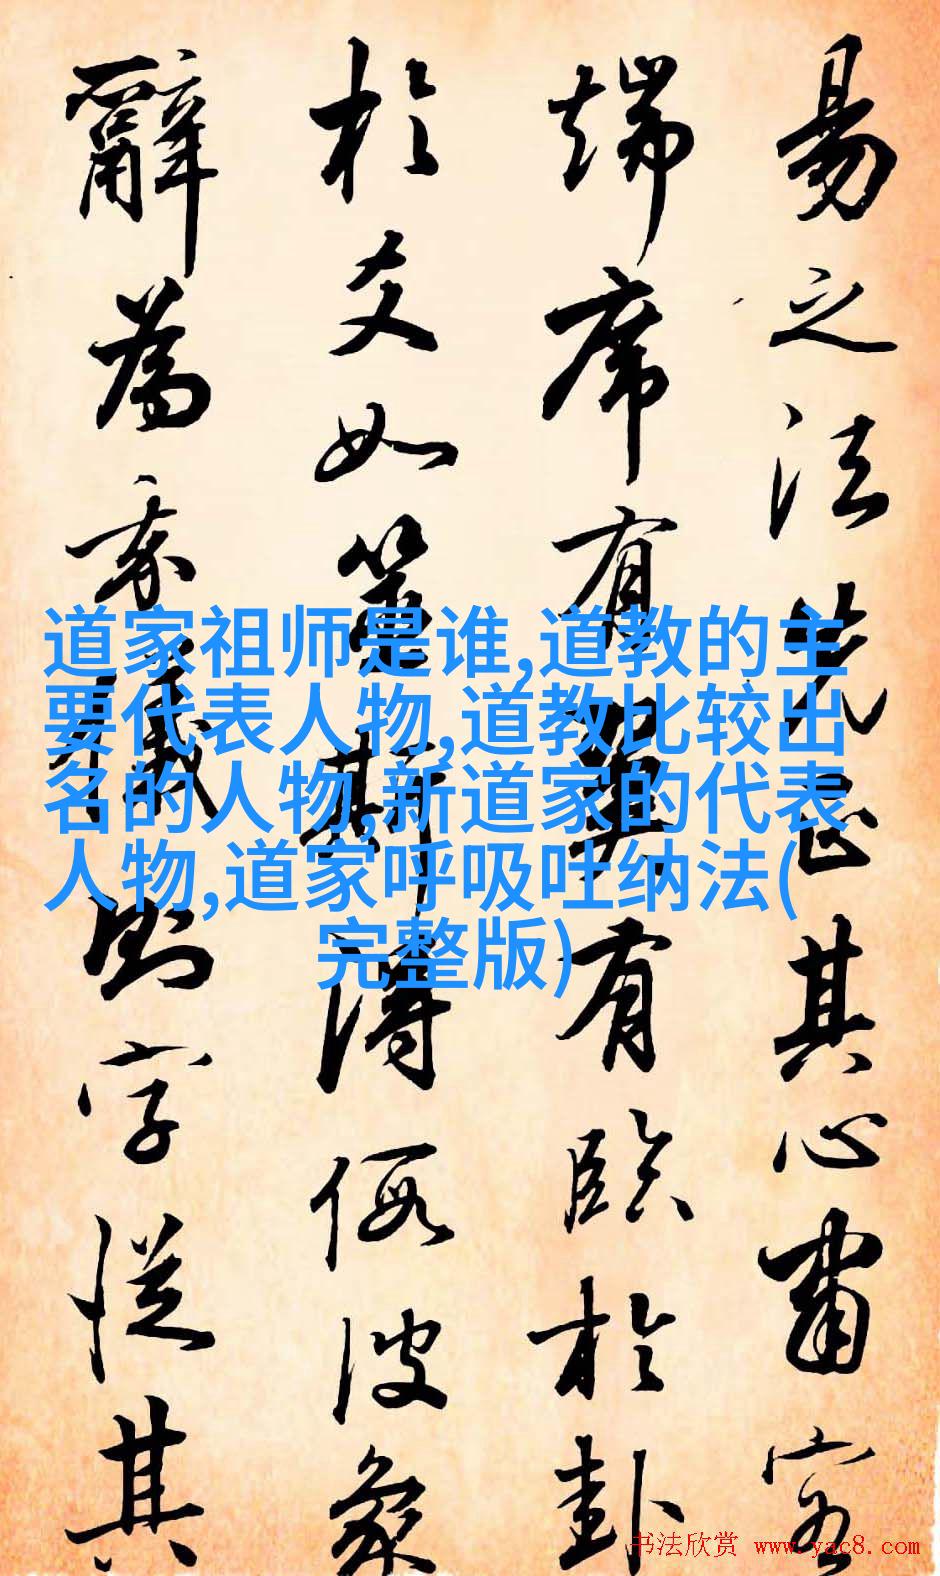 易之法先正其心肅容
端席有翼有臨於卦
於爻如筮斯得假彼象
辭為我儀則字從其
道家祖师是谁,道教的主
要代表人物,道教比较出
名的人物,新道家的代表
人物,道家呼吸吐纳法(
完整版)
书法欣赏 www.yac8.com